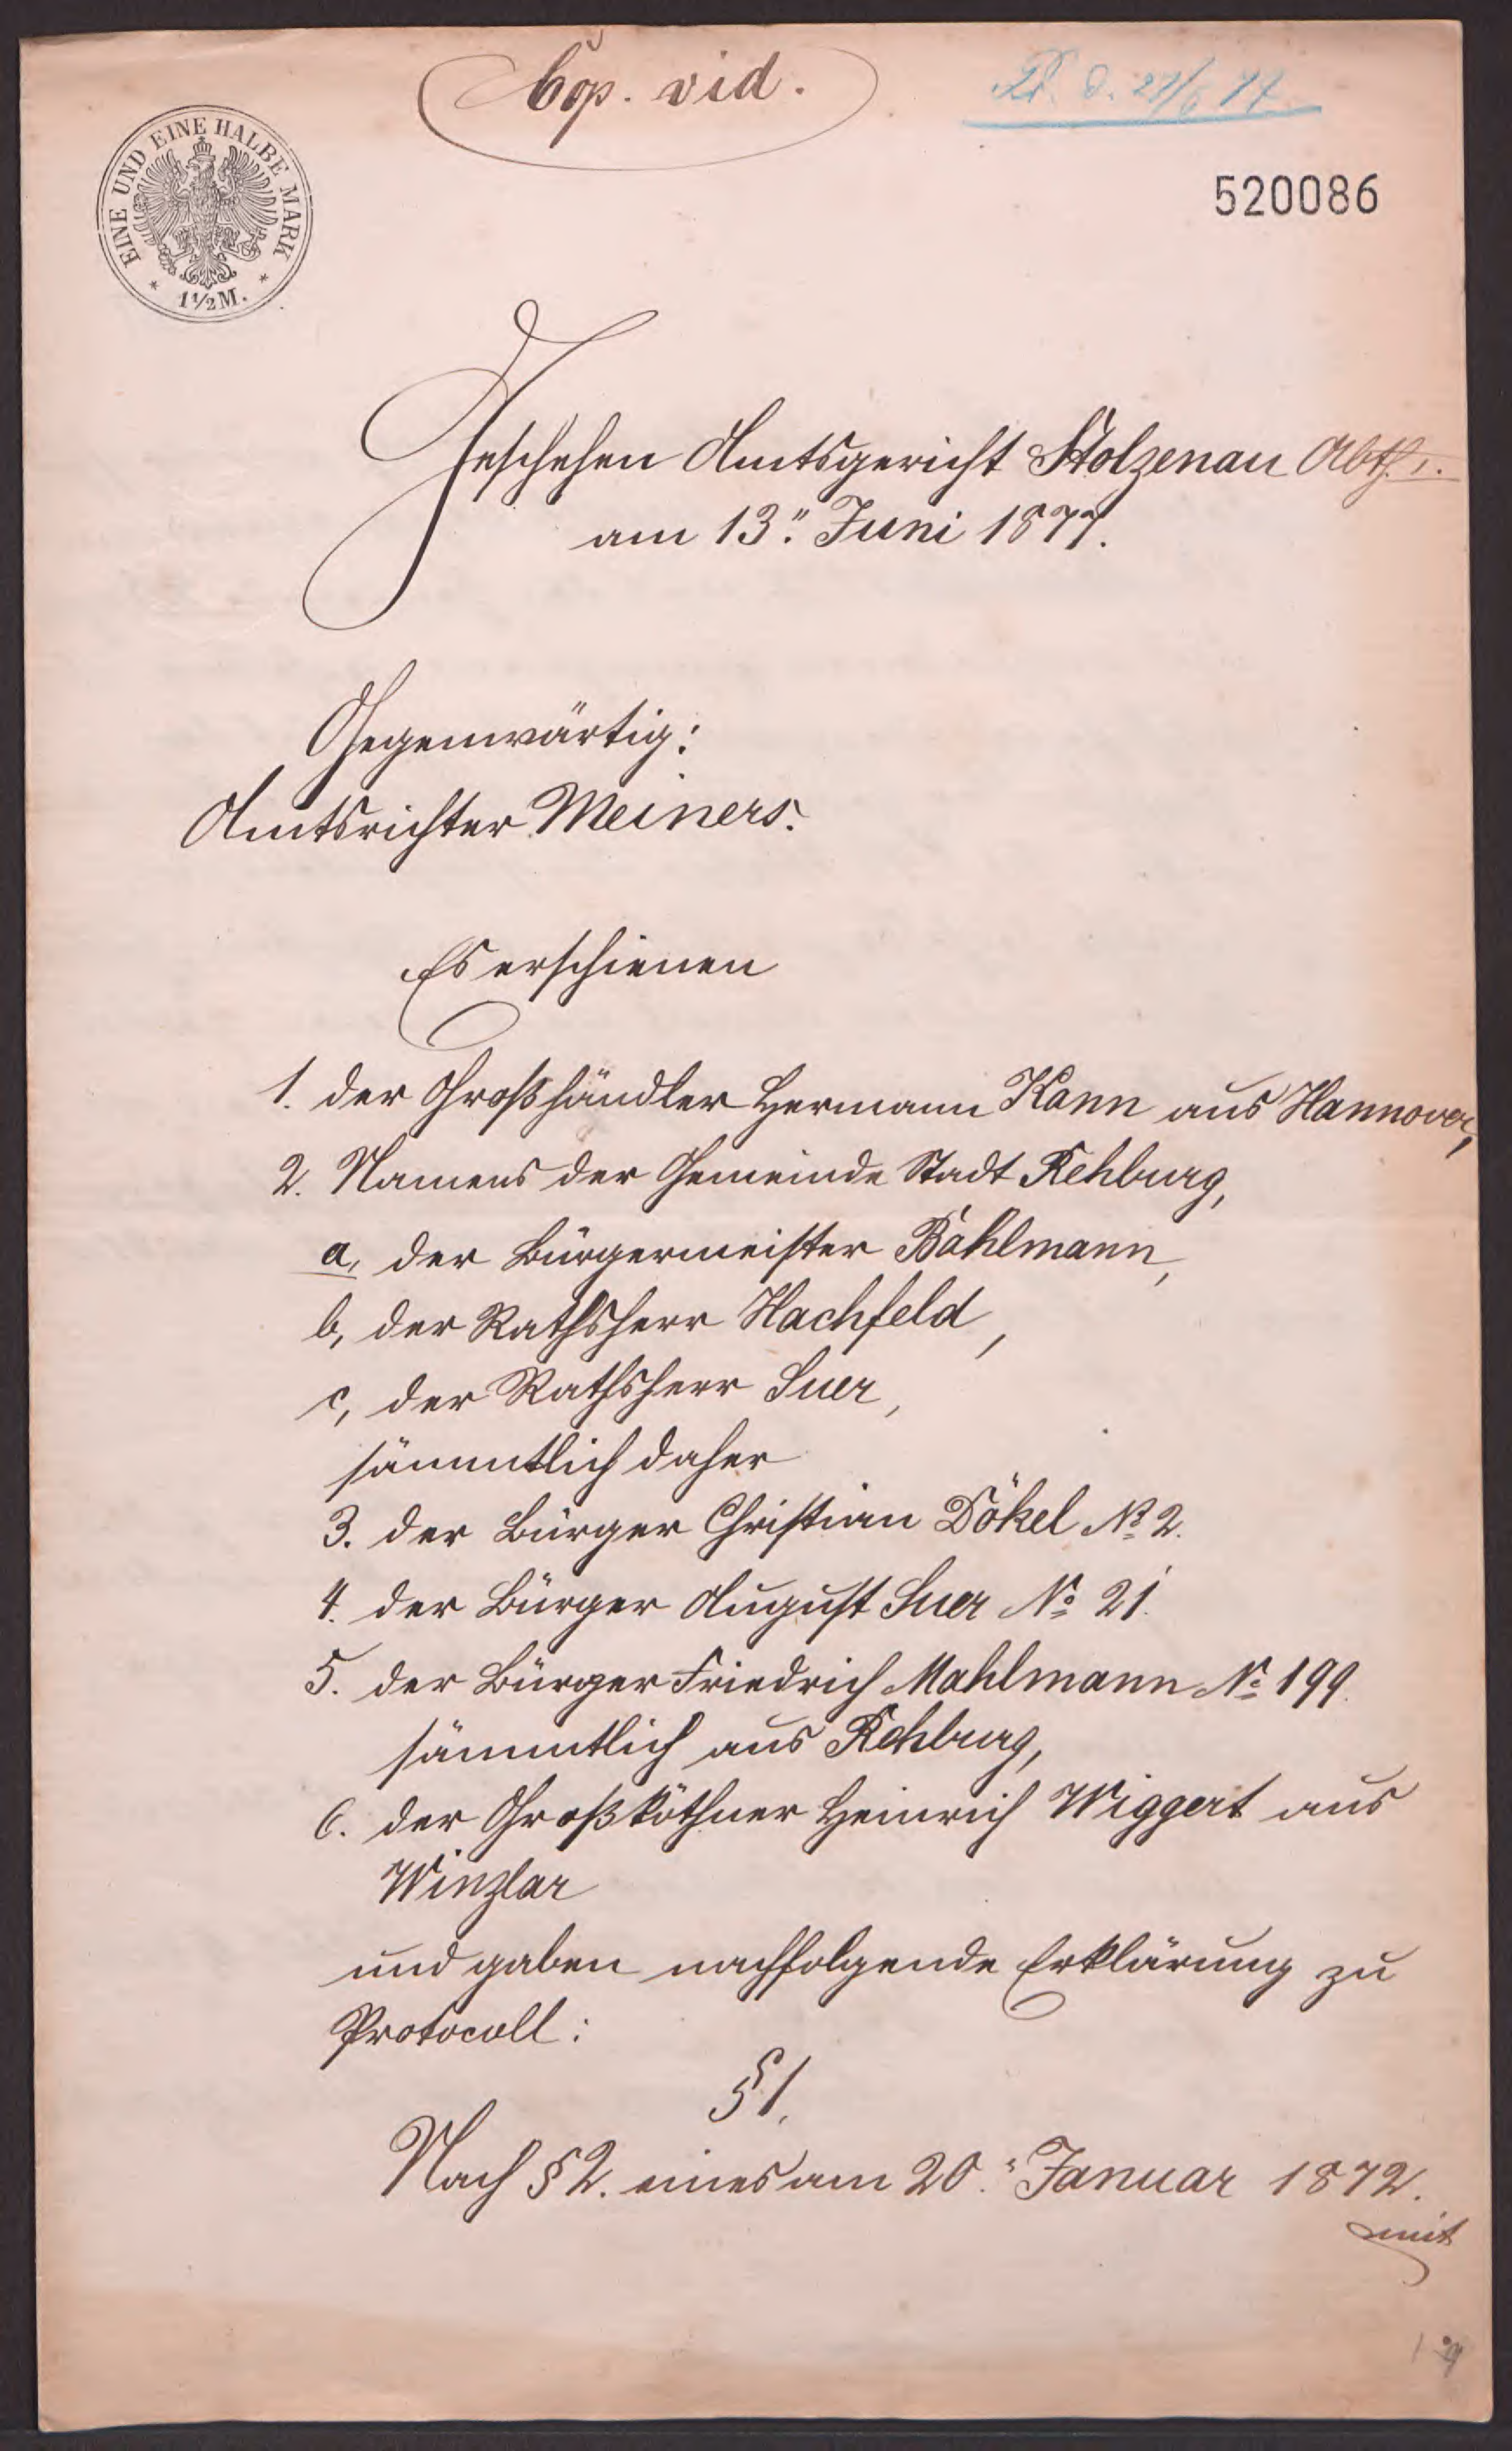 Cop. vid.
d. 22/6 77
EINE UND EINE HALBE MARK
1 1/2 M.
520086
Geschehen Amtsgericht Stolzenau Abth. I.
am 13.ⁿ Juni 1877.
Gegenwärtig:
Amtsrichter Meiners.
Es erschienen
1. der Großhändler Hermann Kann aus Hannover,
2. Namens der Gemeinde Stadt Rehburg,
a, der Bürgermeister Bahlmann,
b, der Rathsherr Hachfeld,
c, der Rathsherr Suer,
sämmtlich daher
3. der Bürger Christian Dökel No 2.
4. der Bürger August Suer No 21.
5. der Bürger Friedrich Mahlmann No 199.
sämmtlich aus Rehburg,
6. der Großköthner Heinrich Wiggert aus
Winzlar
und gaben nachfolgende Erklärung zu
Protocoll:
§ 1.
Nach § 2. eines am 20.ⁿ Januar 1872.
mit